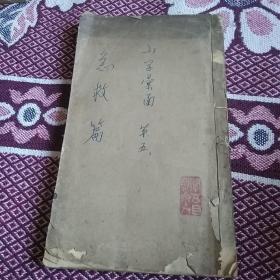 小学彙函 第五
急救篇